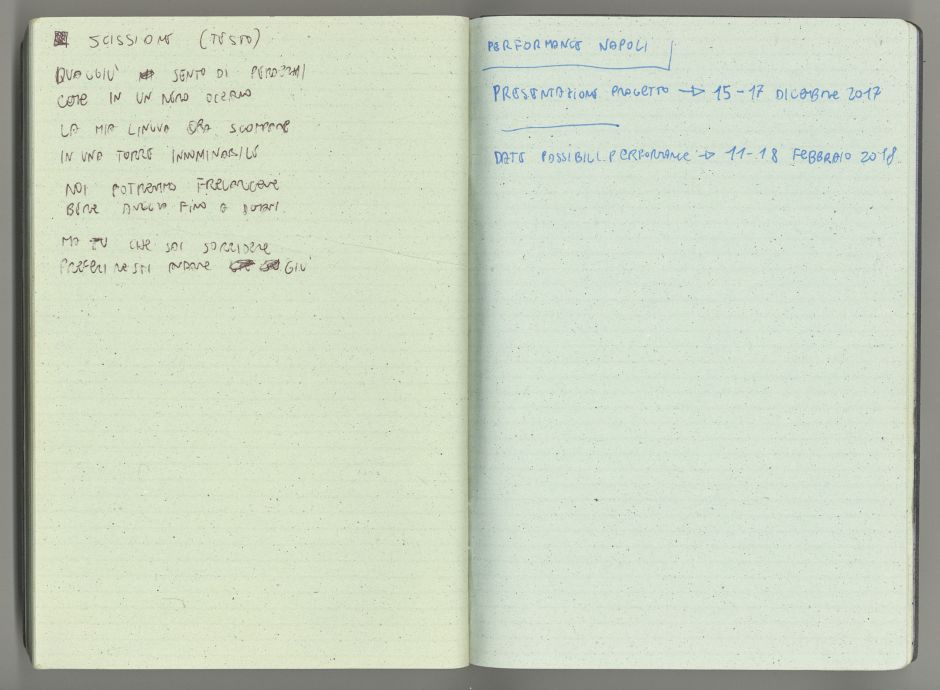 SCISSIONE (TESTO)
QUAGGIÙ SENTO DI PERDERMI
COME IN UN NERO OCEANO
LA MIA LINGUA ERA SCOMPARE
IN UNA TORRE INNOMINABILE
NOI POTREMMO FREGARCENE
BERE FINO A DOMANI
MA TU CHE SAI SORRIDERE
PREFERIRESTI ANDARE GIÙ
PERFORMANCE NAPOLI
PRESENTAZIONE PROGETTO → 15-17 DICEMBRE 2017
DATE POSSIBILI PERFORMANCE → 11-18 FEBBRAIO 2018